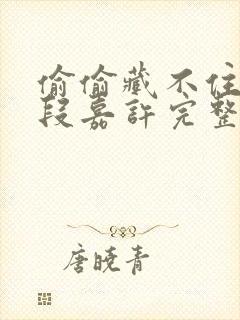 偷偷藏不住
段嘉許完整
唐曉青